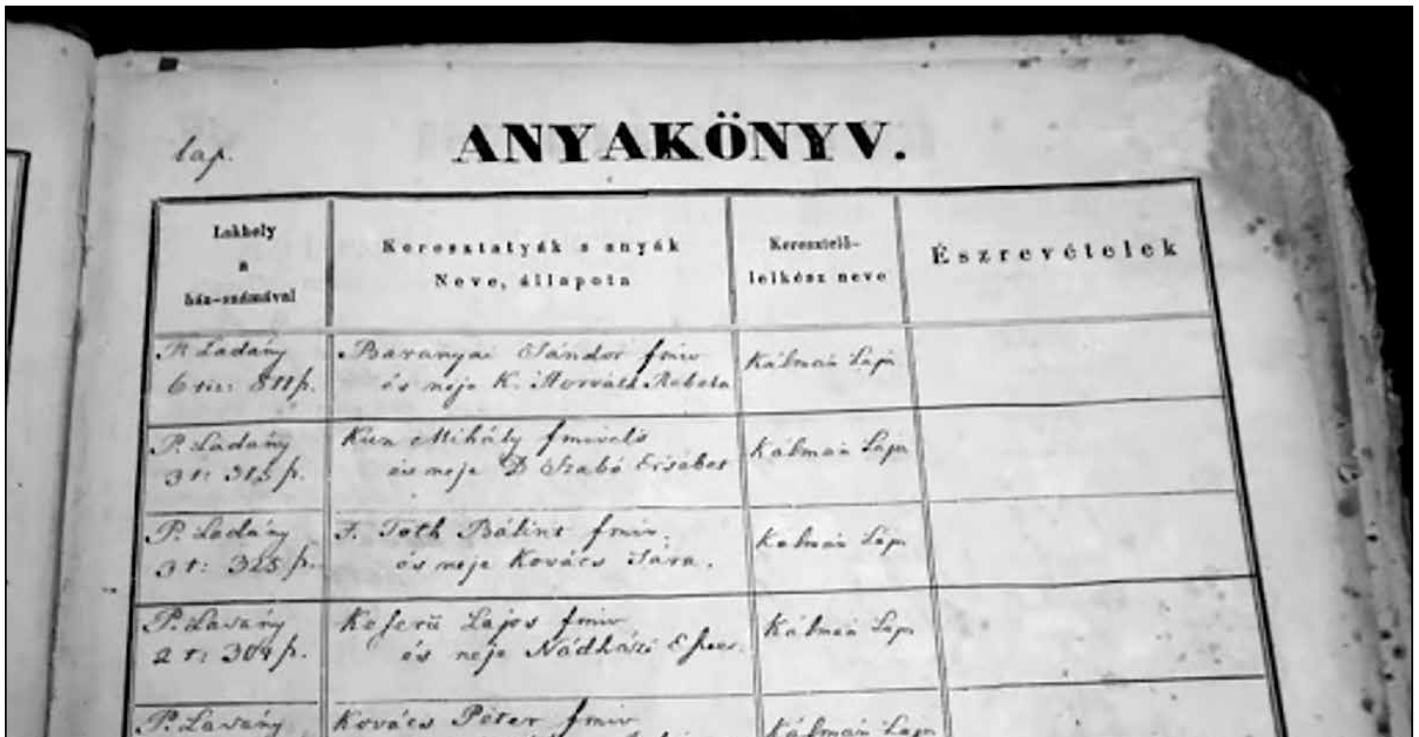 lap.
ANYAKÖNYV.
Lakhely
a
ház-számával
Keresztatyák s anyák
Neve, állapota
Keresztelő-
lelkész neve
Észrevételek
P. Ladány
Baranyai Sándor fmiv
és neje K. Horváth Rebeka
Kálmán Lajos
P. Ladány
3 t: 315 p.
Kun Mihály fmivelő
és neje D Szabó Ersébet
Kálmán Lajos
P. Ladány
3 t: 325 p.
F. Toth Bálint fmiv.
és neje Kovács Sára.
Kálmán Lajos
P. Ladány
2 t: 304 p.
Keserü Lajos fmiv
és neje Nádházi Eszter.
Kálmán Lajos
P. Ladány
Kovács Péter fmiv
Kálmán Lajos